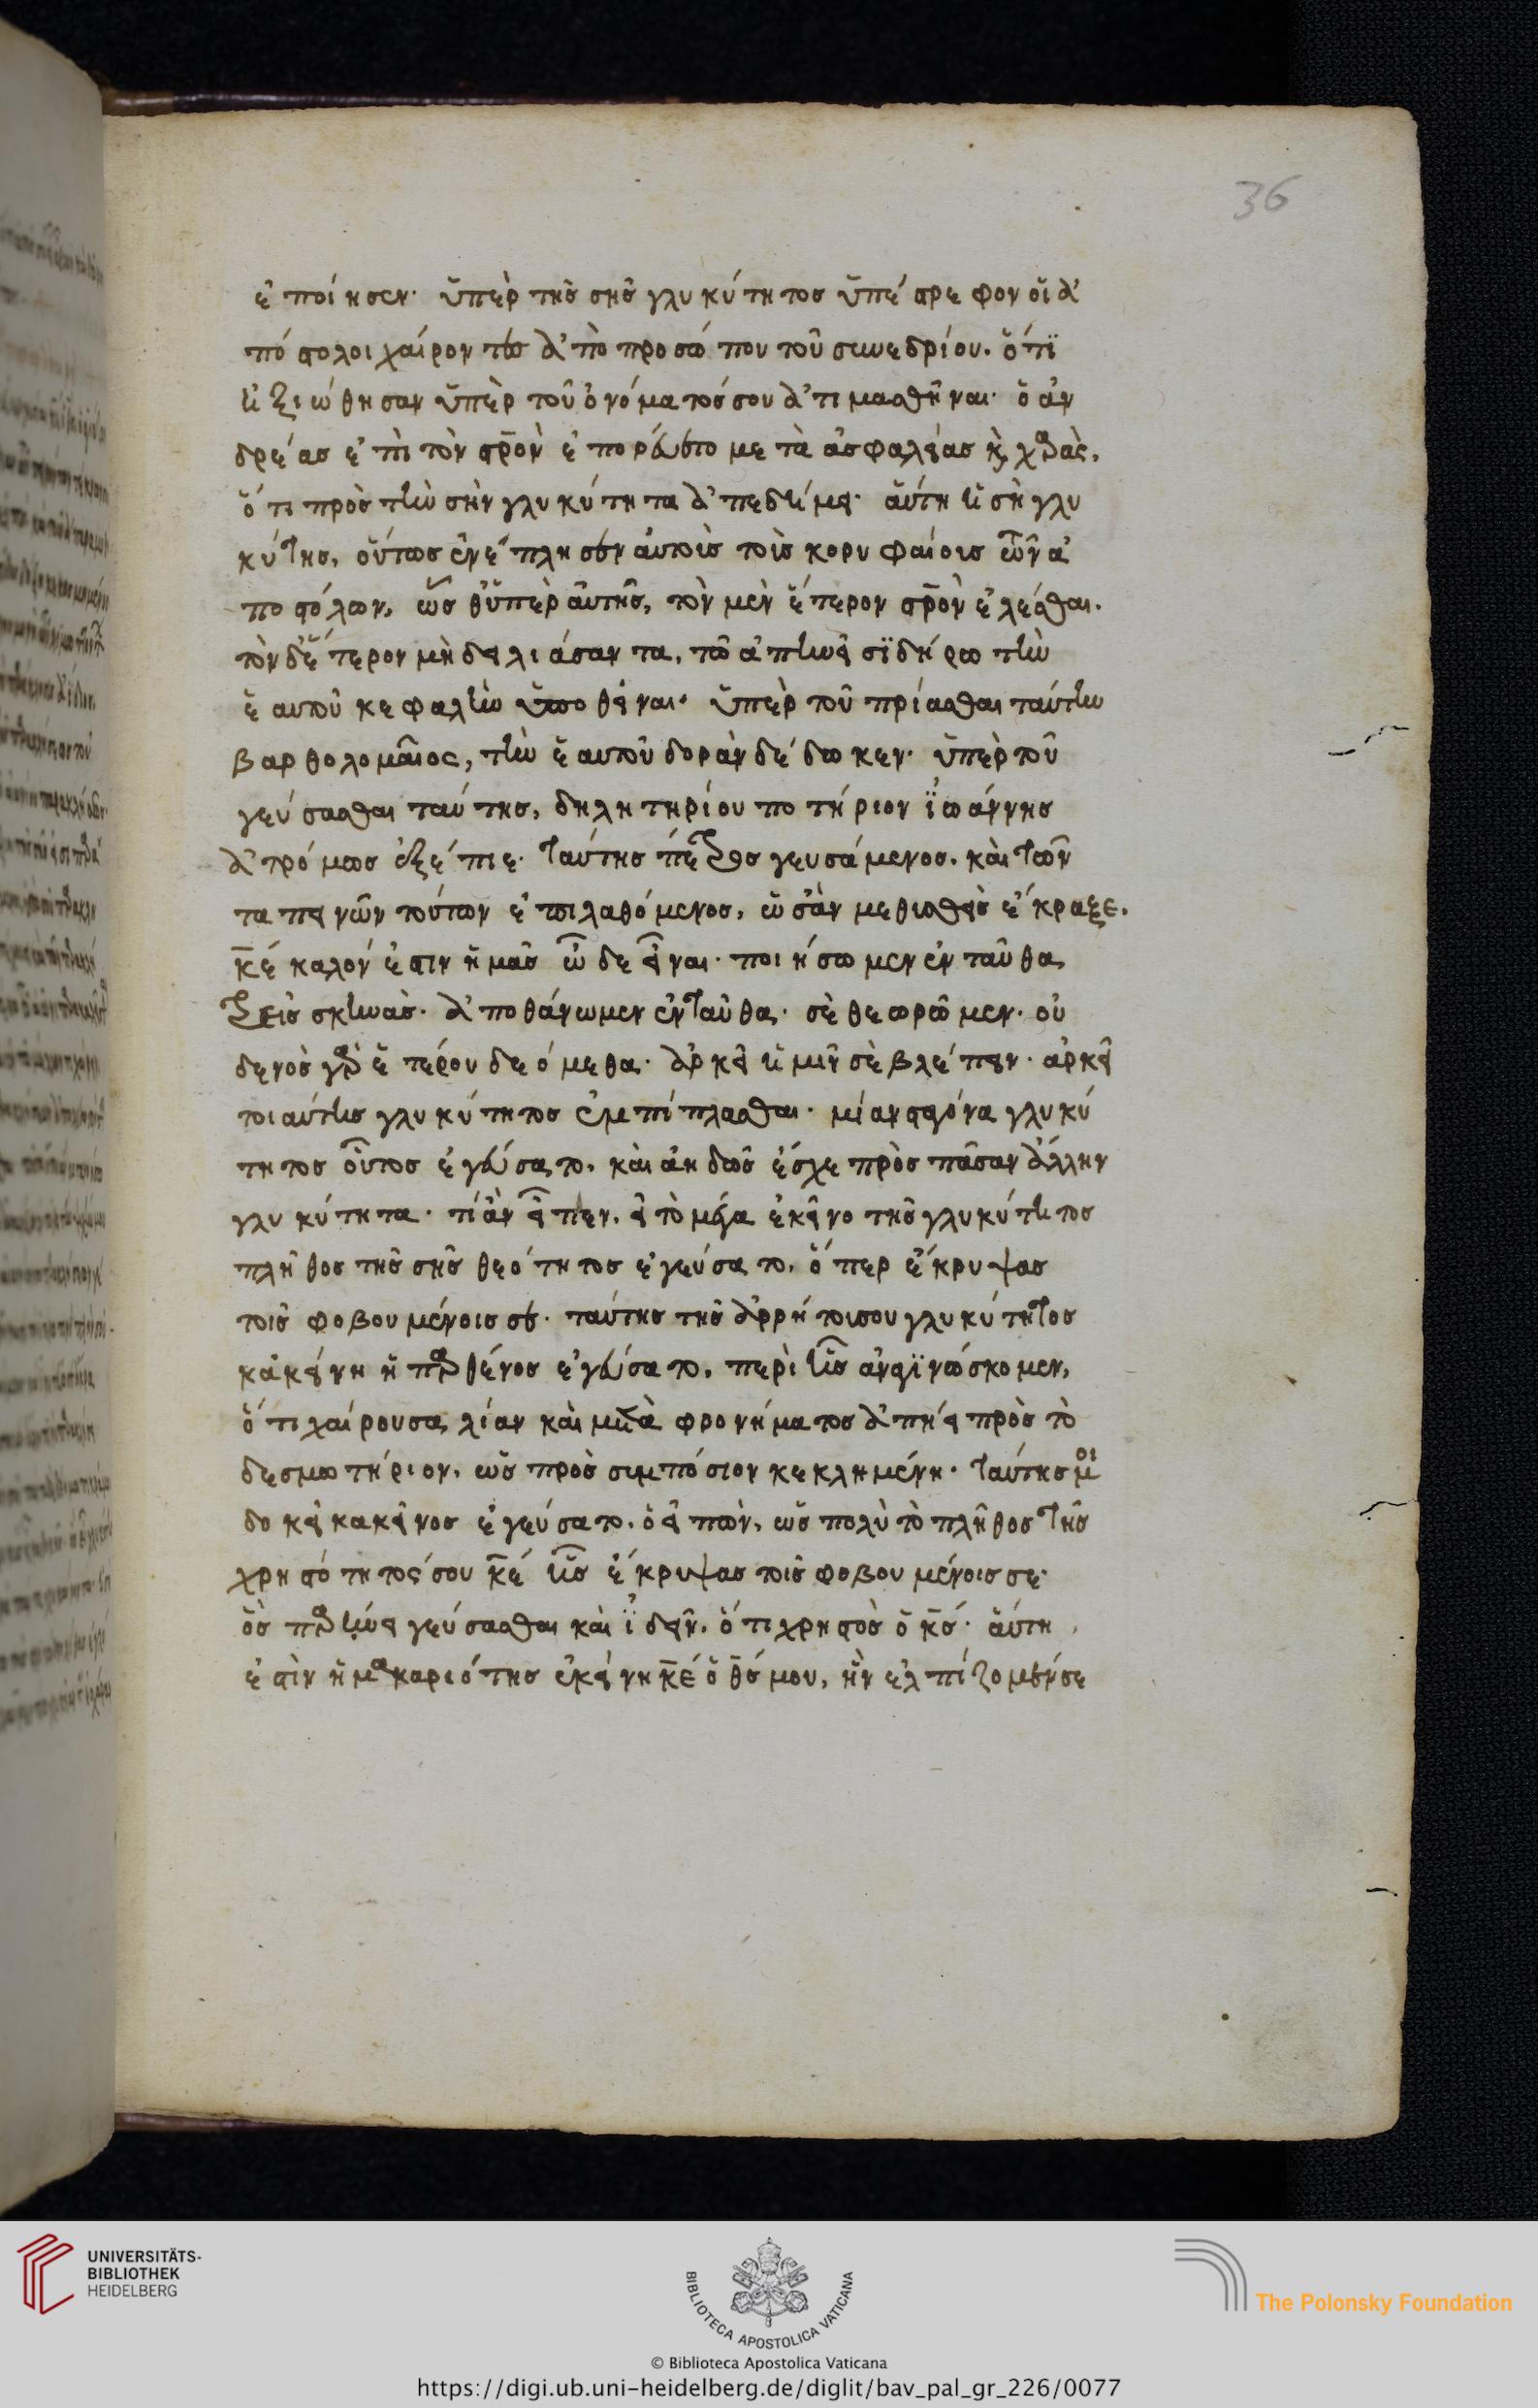 36
ἐποίησεν· ὑπὲρ τῆς σῆς γλυκύτητος ὑπέστρεφον οἱ ἀ
πόστολοι χαίροντες ἀπὸ προσώπου τοῦ συνεδρίου. ὅτι
ἠξιώθησαν ὑπὲρ τοῦ ὀνόματός σου ἀτιμασθῆναι· ὁ ἀν
δρέας ἐπὶ τὸν στρον ἐπορεύετο μετὰ ἀσφαλείας κ χαρᾶς,
ὅτι πρὸς τὴν σὴν γλυκύτητα ἀπεδήμει· αὕτη ἡ σὴ γλυ
κύτης, οὕτως ἐνέπλησεν αὐτοὺς τοὺς κορυφαίους τῶν ἀ
ποστόλων, ὡς ὑπὲρ αὐτῆς, τὸν μὲν ἕτερον στρον ἑλέσθαι.
τὸν δ' ἕτερον μὴ δειλιάσαντα, τῶ ἀπηνεῖ σιδήρω τὴν
ἑαυτοῦ κεφαλὴν ὑποθεῖναι· ὑπὲρ τοῦ πρίασθαι ταύτην
βαρθολομαῖος, τὴν ἑαυτοῦ δορὰν δέδωκεν· ὑπὲρ τοῦ
γεύσασθαι ταύτης, δηλητηρίου ποτήριον ἰωάννης
ἀτρόμως ἐξέπιε· ταύτης πέτρος γευσάμενος. καὶ τῶν
ταπεινῶν τούτων ἐπιλαθόμενος, ὡσὰν μεθυσθεὶς ἔκραξε.
κε καλόν ἐστιν ἡμᾶς ὧδε εἶναι· ποιήσωμεν ἐνταῦθα
τρεῖς σκηνάς· ἀποθάνωμεν ἐνταῦθα· σὲ θεωρῶμεν· οὐ
δενὸς γὰρ ἑτέρου δεόμεθα· ἀρκεῖ ἡμῖν σὲ βλέπειν· ἀρκεῖ
τοιαύτης γλυκύτητος ἐμπίπλασθαι· μίαν σταγόνα γλυκύ
τητος οὗτος ἐγεύσατο, καὶ ἀηδῶς ἔσχε πρὸς πᾶσαν ἄλλην
γλυκύτητα· τί ἂν εἶπεν, εἰ τὸ μέγα ἐκεῖνο τῆς γλυκύτητος
πλῆθος τῆς σῆς θεότητος ἐγεύσατο, ὅπερ ἔκρυψας
τοῖς φοβουμένοις σε· ταύτης τῆς ἀρρήτου σου γλυκύτητος
κἀκείνη ἡ παρθένος ἐγεύσατο, περὶ ἧς ἀναγινώσκομεν,
ὅτι χαίρουσα λίαν καὶ μετὰ φρονήματος ἀπήει πρὸς τὸ
δεσμωτήριον, ὡς πρὸς συμπόσιον κεκλημένη· ταύτης μοι
δοκεῖ κακεῖνος ἐγεύσατο, ὁ εἰπών, ὡς πολὺ τὸ πλῆθος τῆς
χρηστότητός σου κε ἧς ἔκρυψας τοῖς φοβουμένοις σε·
ὃς παρήνει γεύσασθαι καὶ ἰδεῖν, ὅτι χρηστὸς ὁ κς· αὕτη
ἐστὶν ἡ μακαριότης ἐκείνη κε ὁ θς μου, ἣν ἐλπίζομέν σε
UNIVERSITÄTS-
BIBLIOTHEK
HEIDELBERG
BIBLIOTECA APOSTOLICA VATICANA
The Polonsky Foundation
© Biblioteca Apostolica Vaticana
https://digi.ub.uni-heidelberg.de/diglit/bav_pal_gr_226/0077